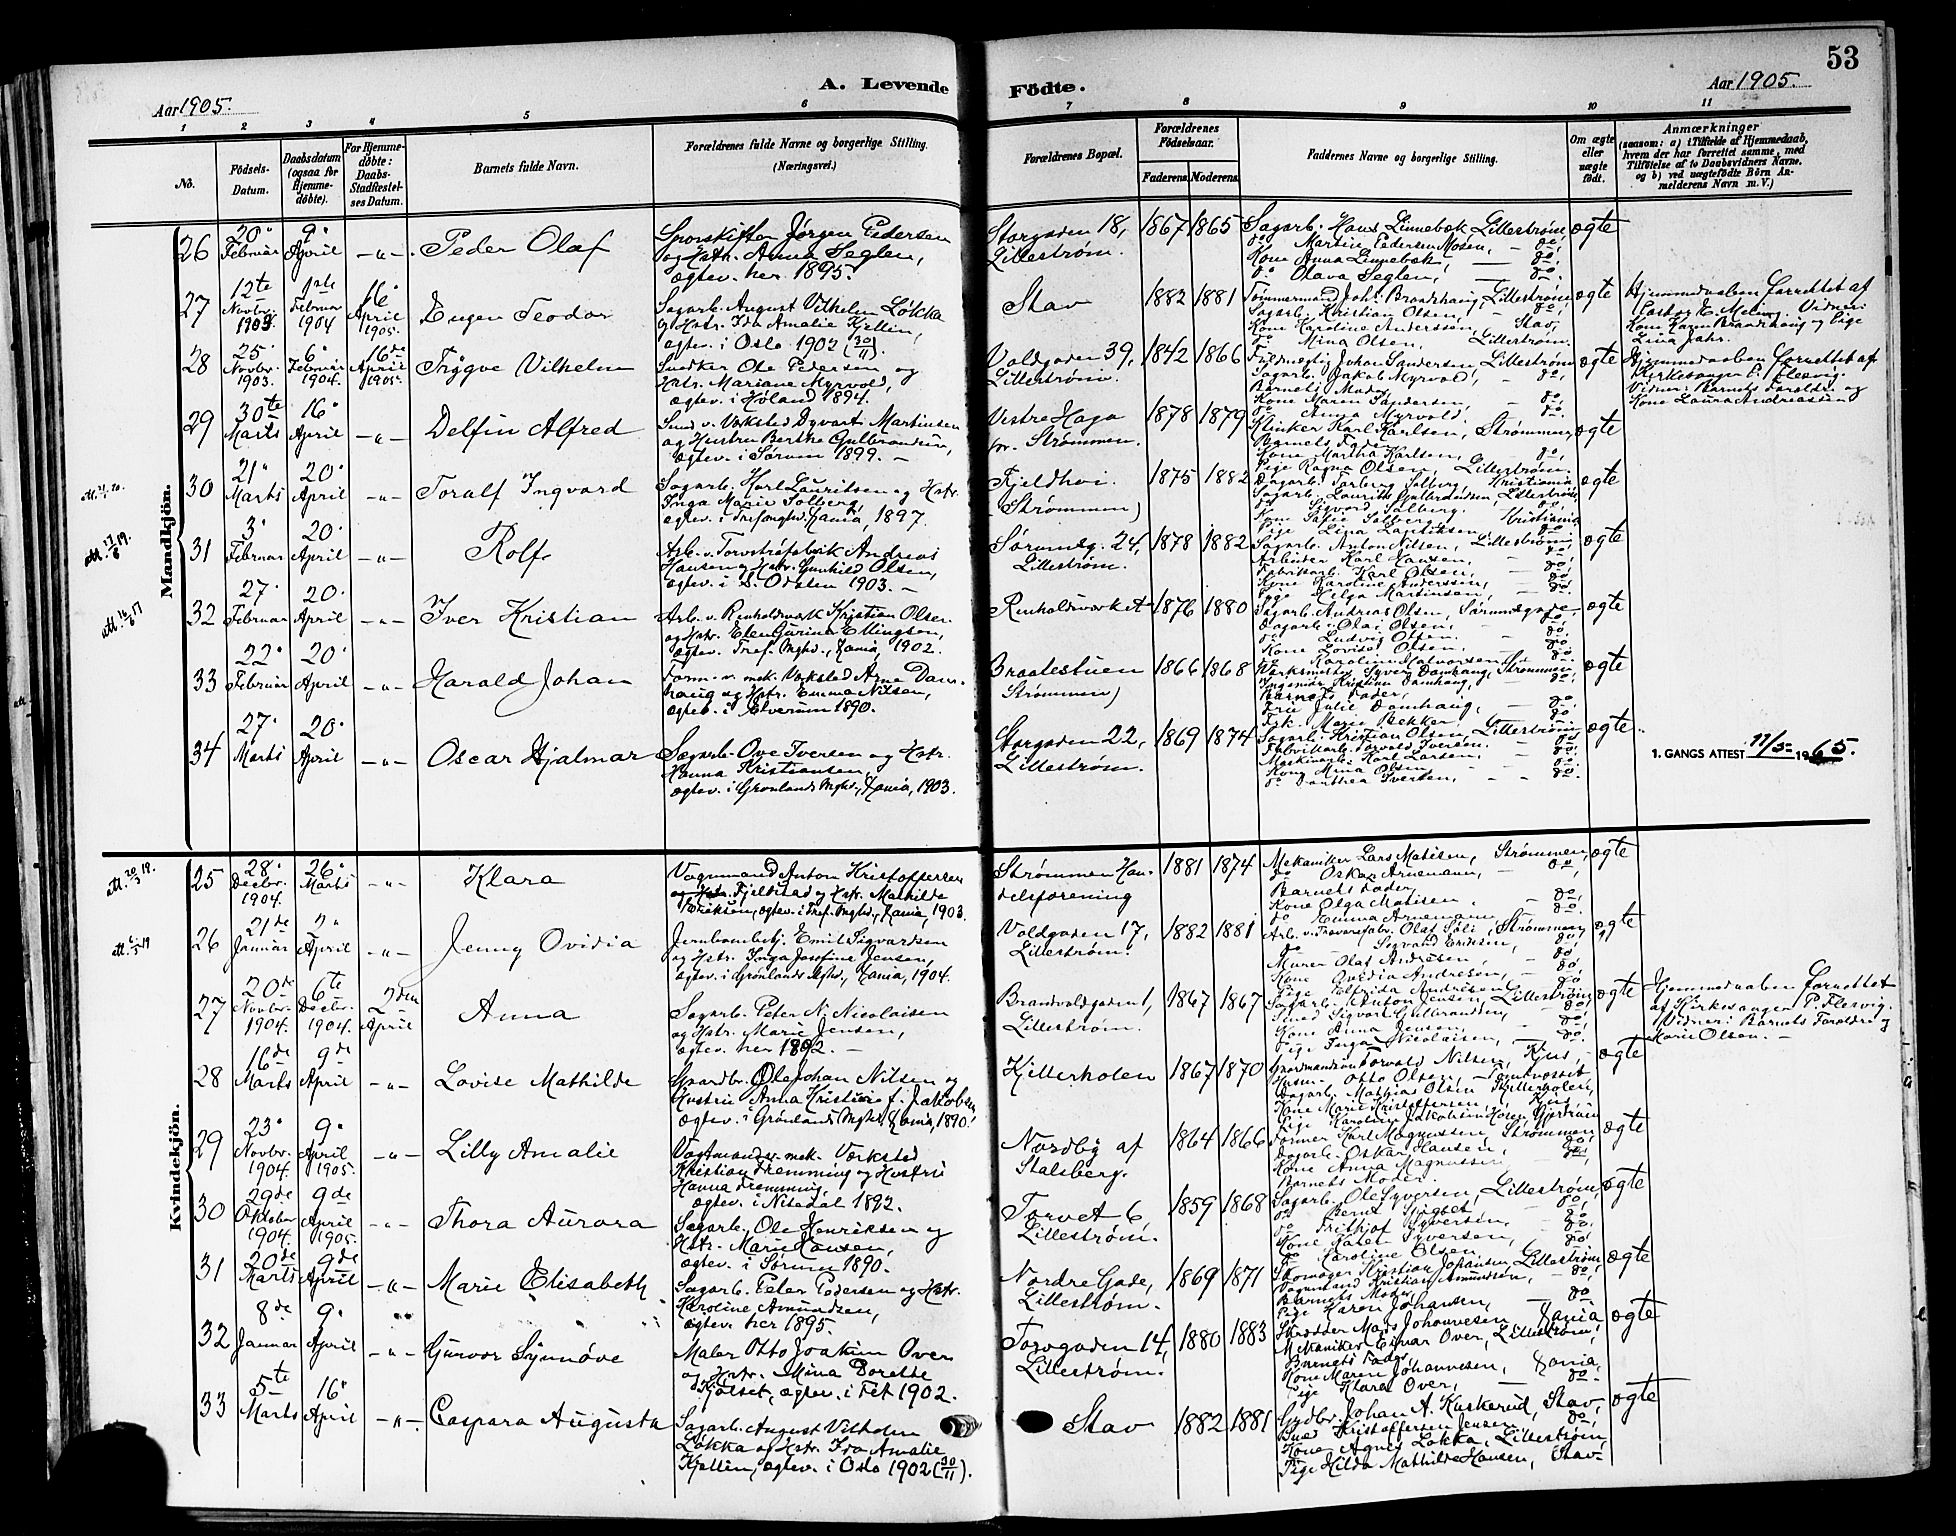 53
A. Levende Födte.
Aar 1905.
Aar 1905.
1 2 3 4 5 6 7 8 9 10 11
No.
Födsels-Datum.
Daabsdatum (ogsaa for Hjemme-döbte).
For Hjemme-döbte: Daabs-Stadfæstel-ses Datum.
Barnets fulde Navn.
Forældrenes fulde Navne og borgerlige Stilling.
(Næringsvei.)
Forældrenes Bopæl.
Forældrenes Födselsaar.
Faderens. Moderens.
Faddernes Navne og borgerlige Stilling.
Om ægte eller uægte födt.
Anmærkninger
(saasom: a) i Tilfælde af Hjemmedaab, hvem der har forrettet samme, med Tilföielse af to Daabsvidners Navne, og b) ved uægtefödte Börn Anmelderens Navn m. V.)
Mandkjön.
26 20. Februar 9. April -"- Peder Olaf
Sporskifter Jørgen Pedersen
og Hstr. Anna Seglen,
ægtev. her 1895.
Storgaden 18, Lillestrøm. 1867 1865
Sagarb. Hans Linnebæk Lillestrøm
do Martin Pedersen Mosen, - do,
Kone Anna Linnebæk - do,
do Olava Seglen, - do.
ægte
27 12te Novbr. 1903 1ste Februar 1904 16de April 1905. Eugen Teodor
Sagarb. August Vilhelm Løkka
og Hstr. Ida Amalie Kjellin,
ægtev. i Oslo 1902 (30/11).
Stav 1882 1881
Tømmermand Johs. Brandhaug, Lillestrøm
Sagarb. Kristian Olsen, do,
Kone Karoline Anderssen, Stav,
do Mina Olsen, Lillestrøm.
ægte
Hjemmedaaben forrettet af
Pastor E. Melung. Vidner:
Kone Karen Brandhaug og Pige
Lina Jahr.
28 25. Novbr. 1903. 6. Februar 1904. 16de April 1905. Trygve Vilhelm
Snedker Ole Pedersen og
Hstr. Mariane Myrvold,
ægtev. i Høland 1894.
Voldgaden 39, Lillestrøm. 1842 1866
Sagarb. Jakob Myrvold, - do,
Barnets Moder
Kone Maren Sandersen - do,
do Anna Myrvold, do.
ægte
Hjemmedaaben forrettet af
Kirkesanger P. Flesvig.
Vidner: Barnets Forældre og
Kone Laura Andreassen
29 30te Marts 16. April -"- Delfin Alfred
Smed v. Værksted Dyvart Martinsen
og Hustru Berthe Gulbrandsen,
ægtev. i Sørum 1899. -
Vestre Haga pr. Strømmen. 1878 1879
Klinker Karl Karlsen, Strømmen,
Barnets Fader
Kone Martha Karlsen, do,
Pige Ragna Olsen, Lillestrøm.
ægte
30 21. Marts 20. April -"- Toralf Ingvard
Sagarb. Karl Lauritsen og Hstr.
Inga Marie Solberg,
ægtev. i Trefoldighed, Xania, 1897.
Fjeldhvi. Strømmen) 1875 1882
Dagarb. Torberg Solberg, Kristiania
Sagarb. Laurits Gulbrandsen, Lillestrøm
do Sigvard Solberg.
Kone Sofie Solberg Kristiania
ægte
31 3. Februar 20. April -"- Rolf
Arb. v. Torvstrøfabrik Andreas
Hansen og Hstr. Gunhild Olsen,
ægtev. i S. Odalen 1903. -
Sørumsg. 24, Lillestrøm. 1878 1882
Sagarb. Anton Nilsen, Lillestrøm
Arbeider Karl Hansen, do
Fabrikarb. Karl Olsen, - do
Kone Karoline Anderssen, - do.
Pige Helga Martinsen, - do.
ægte
32 27. Februar 20. April -"- Iver Kristian
Arb. v. Renholdsværk Kristian Olsen
og Hstr. Elen Gurine Ellingsen,
ægtev. Tref. Mghd., Xania, 1902.
Renholdsværket 1876 1880
Sagarb. Andreas Olsen, Sørumsgade
Dagarb. Olai Olsen, do,
do Ludvig Olsen. do
Kone Lovise Olsen - do
ægte
33 22. Februar 20. April -"- Harald Johan
Form. v. mek. Værksted Arne Dam-
haug og Hstr. Emma Nilsen,
ægtev. i Elverum 1890.
Braatestuen Strømmen) 1866 1868
Værksmester Syver Damhaug, Strømmen
Ingeniør Kristian Damhaug, do,
Barnets Fader,
Frue Julie Damhaug, - do,
Frk. Marie Bekker do
ægte
34 27. Marts 20. April -"- Oscar Hjalmar
Sagarb. Ove Iversen og Hstr.
Hanna Kristiansen,
ægtev. i Grønlands Mghd., Xania, 1903.
Storgaden 22, Lillestrøm. 1869 1874
Sagarb. Kristian Olsen, Lillestrøm
Fabrikarb. Torvald Iversen. - do
Maskinarb. Karl Larsen, - do.
Kone Mina Olsen, - do
do Danthea Iversen, - - do.
ægte
1. GANGS ATTEST 11/5 1965.
Kvindekjön.
25 28. Decbr. 1904. 26. Marts -"- Klara
Vognmand Anton Kristoffersen
og Hstr. Fjeldstad og Hstr. Mathilde
Eriksen, ægtev. i Tref. Mghd., Xania, 1903.
Strømmen Handelsforening 1881 1874
Mekaniker Lars Matisen, Strømmen,
do Oskar Arnemann, - do,
Barnets Fader,
Kone Olga Matisen, - do,
do Emma Arnemann do.
ægte
26 21de Januar 2. April -"- Jenny Ovidia
Jernbanebetj. Emil Sigvardsen
og Hstr. Inga Josefine Jensen,
ægtev. i Grønlands Mghd., Xania, 1904.
Voldgaden 17, Lillestrøm. 1882 1881
do Sigvard Eriksen, do,
Murer Olaf Andresen, - do
Kone Ovedia Andresen, - do,
Pige Elfrida Andresen do
ægte
27 20de Novbr. 1904. 6te Decbr. 1904. 2den April Anna
Sagarb. Peter N. Nicolaisen
og Hstr. Marie Jensen,
ægtev. her 1892. -
Brandvoldgaden 1, Lillestrøm. 1867 1867
Sagarb. Anton Jensen, Lillestrøm
Smed Sigvart Gulbrandsen, do,
Kone Anna Jensen, - do,
Pige Inga Nicolaisen, - do,
ægte
Hjemmedaaben forrettet
af Kirkesanger P. Flesvig.
Vidner: Barnets Forældre og
Marie Olsen. -
28 16de Marts 9de April -"- Lovise Mathilde
Gaardbr. Ole Johan Nilsen og
Hustru Anna Kristine f. Jakobsen,
ægtev. i Grønlands Mghd., Xania, 1890.
Kjillerholen 1867 1870
Gaardmandssøn Torvald Nilsen, Kjus,
Husm. Otto Olsen,
Dagarb. Mathias Olsen Kjillerholen,
Kone Marie Kristoffersen, Kjus,
ægte
29 23. Novbr. 1904. 9. April 1905. -"- Lilly Amalie
Vagtmand v. mek. Værksted
Kristian Fremming og Hustru
Hanna Fremming,
ægtev. i Nitedal 1892.
Nordby af Stalsberg. 1864 1866
Former Karl Magnussen, Strømmen
Dagarb. Oskar Hansen, do,
Kone Anna Magnussen do.
Barnets Moder.
ægte
30 29de Oktober 1904. 9de April 1905. -"- Thora Aurora
Sagarb. Ole Henriksen og
Hstr. Marie Hansen,
ægtev. i Sørum 1890.
Torvet 6, Lillestrøm. 1859 1868
Sagarb. Ole Syversen, Lillestrøm,
do Fritjof Syversen, do
Kone Karen Syversen, - do
do Karoline Olsen
ægte
31 20de Marts 9de April -"- Marie Elisabeth
Sagarb. Peter Pedersen og Hstr.
Karoline Amundsen,
ægtev. her 1895.
Nordre Gade, Lillestrøm. 1869 1871
Skomager Kristian Johansen, Lillestrøm,
Vognmand Kristian Amundsen, - do,
Barnets Moder, do
Pige Karen Johansen,
ægte
32 8de Januar 9. April -"- Gunvor Synnøve
Maler Otto Joakim Over
og Hstr. Mina Dorethe
Kjølset, ægtev. i Fet 1902.
Torvgaden 14, Lillestrøm. 1880 1883
Skrædder Mads Johannesen, Xania
Mekaniker Einar Over, Lillestrøm,
Barnets Fader
Kone Maren Johannesen, Xania,
Pige Klara Over, - do.
ægte
33 5te Marts 16. April -"- Caspara Augusta
Sagarb. August Vilhelm
Løkka og Hstr. Ida Amalie
Kjellin, ægtev. i Oslo 1902 (30/11).
Stav 1882 1881
Grdbr. Johan A. Kuskerud, Stav,
Smed Kristoffersen Jensen do,
Kone Agnes Løkka, Lillestrøm,
Pige Hilda Mathilde Hansen, Stav
ægte